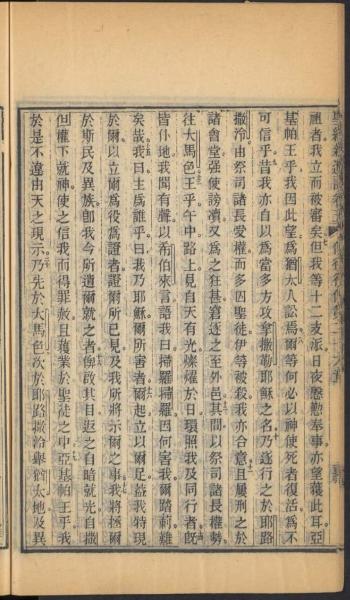 祖者我立而被審矣但我等十二支派日夜慇勤奉事亦望獲此耳亞
基帕王乎我因此望爲猶太人訟焉爾等何必以神使死者復活爲不
可信乎昔我亦自以爲當多方攻拿撒勒耶穌之名乃遂行之於耶路
撒冷由祭司諸長受權而多囚聖徒伊等被殺我亦合意且屢刑之於
諸會堂强使謗讟又爲之狂甚窘逐之至外邑其間以祭司諸長權勢
往大馬色王乎午中路上見自天有光燦耀於日環照我及同行者旣
皆仆地我聞有聲以希伯來言語我曰掃羅掃羅因何害我爾踢莿難
矣哉我曰主爲誰乎曰我乃耶穌爾所害者爾起立以爾足蓋我特現
於爾以立爾爲役爲證者證爾所已見及我所將示爾之事我將拯爾
於斯民及異族卽我今所遣爾就之者俾啟其目返之自暗就光自撒
但權下就神使之信我而得罪赦且獲業於聖徒之中亞基帕王乎我
於是不違由天之現示乃先於大馬色次於耶路撒冷與猶太地及異